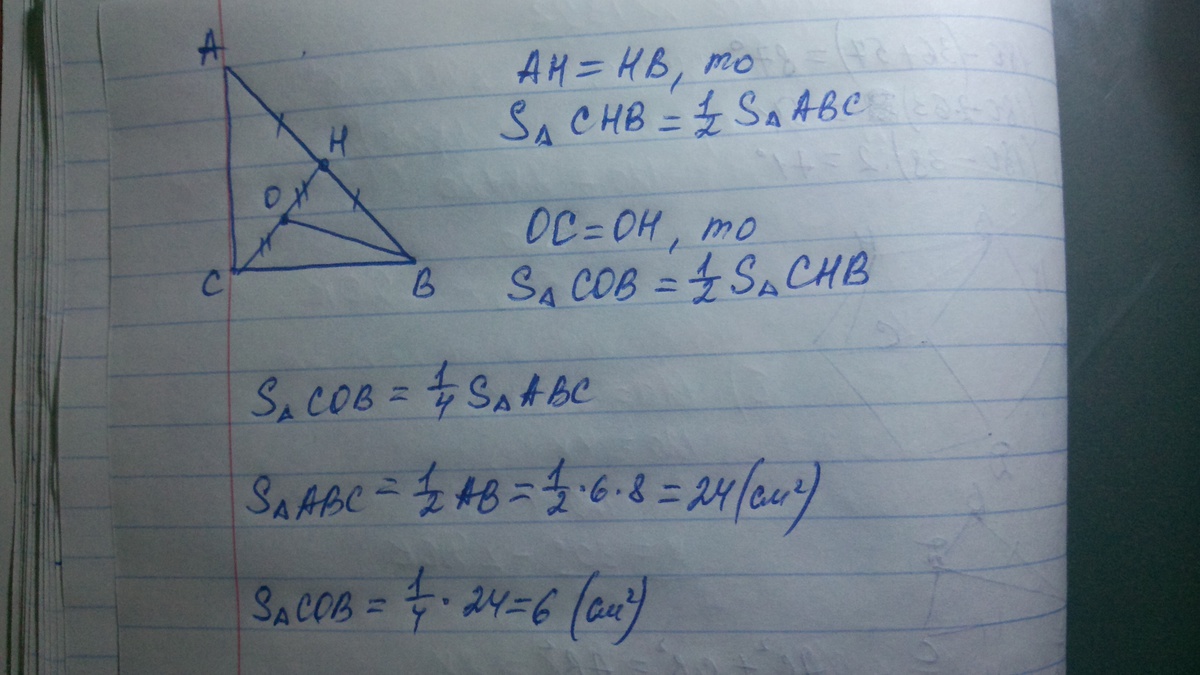 A
H
O
C
B
AH = HB, то
S△ CHB = 1/2 S△ ABC
OC = OH, то
S△ COB = 1/2 S△ CHB
S△ COB = 1/4 S△ ABC
S△ ABC = 1/2 AB = 1/2 · 6 · 8 = 24 (см²)
S△ COB = 1/4 · 24 = 6 (см²)